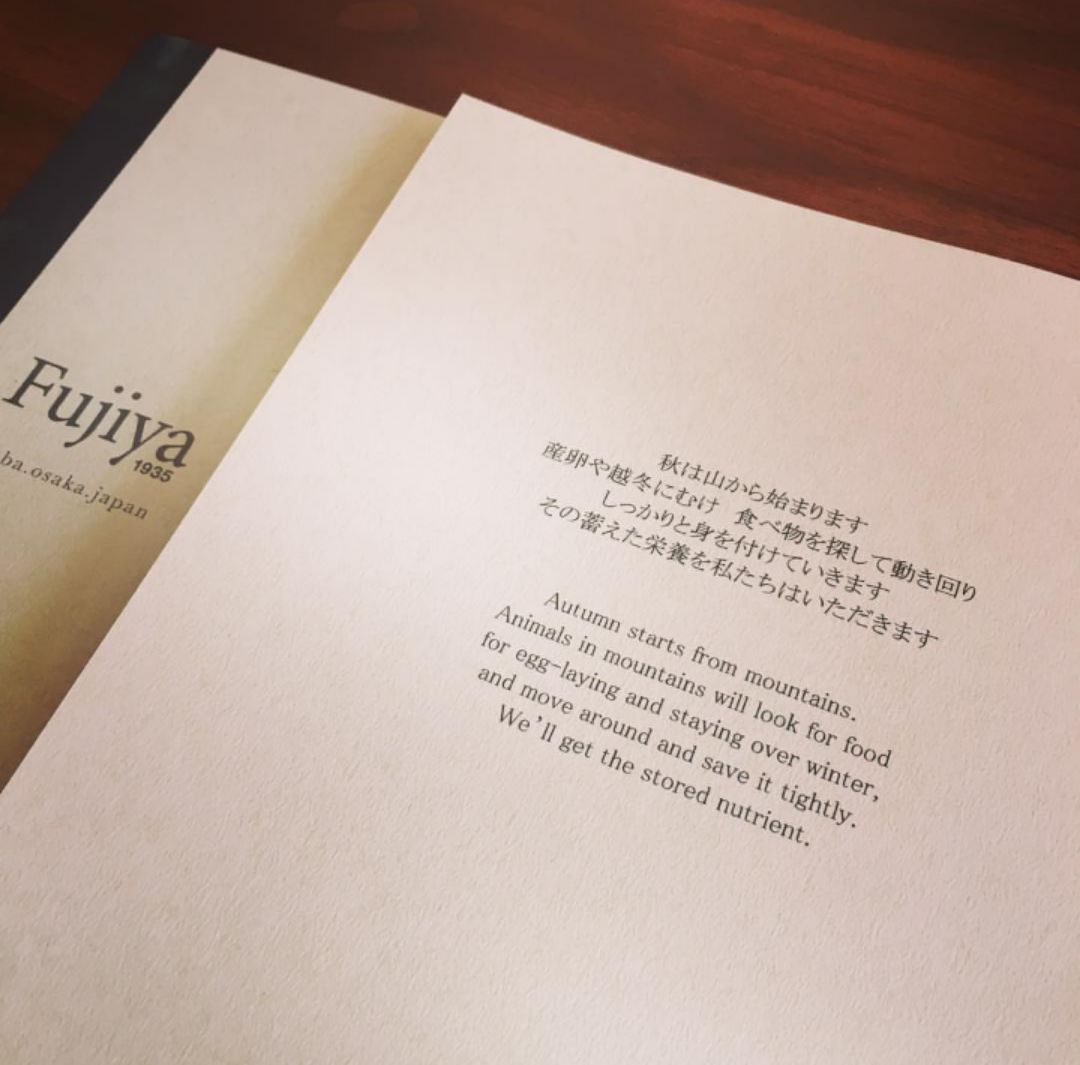 Fujiya
1935
ba.osaka.japan
秋は山から始まります
産卵や越冬にむけ　食べ物を探して動き回り
しっかりと身を付けていきます
その蓄えた栄養を私たちはいただきます
Autumn starts from mountains.
Animals in mountains will look for food
for egg-laying and staying over winter,
and move around and save it tightly.
We'll get the stored nutrient.